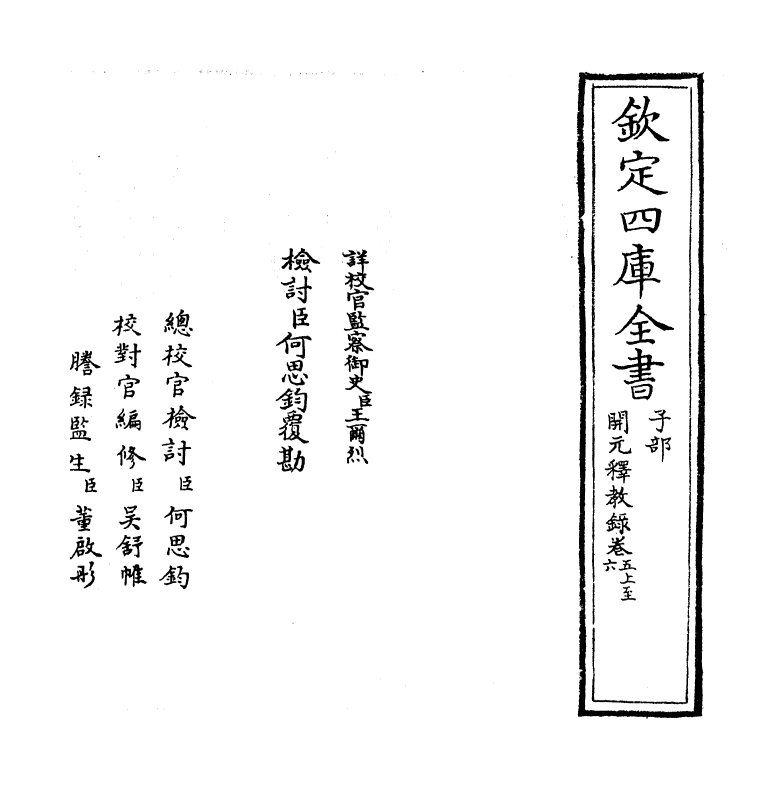 欽定四庫全書
子部
開元釋教錄卷五上至六
詳校官監察御史臣王爾烈
檢討臣何思鈞覆勘
總校官檢討臣何思鈞
校對官編修臣吴舒帷
謄錄監生臣董啟彤